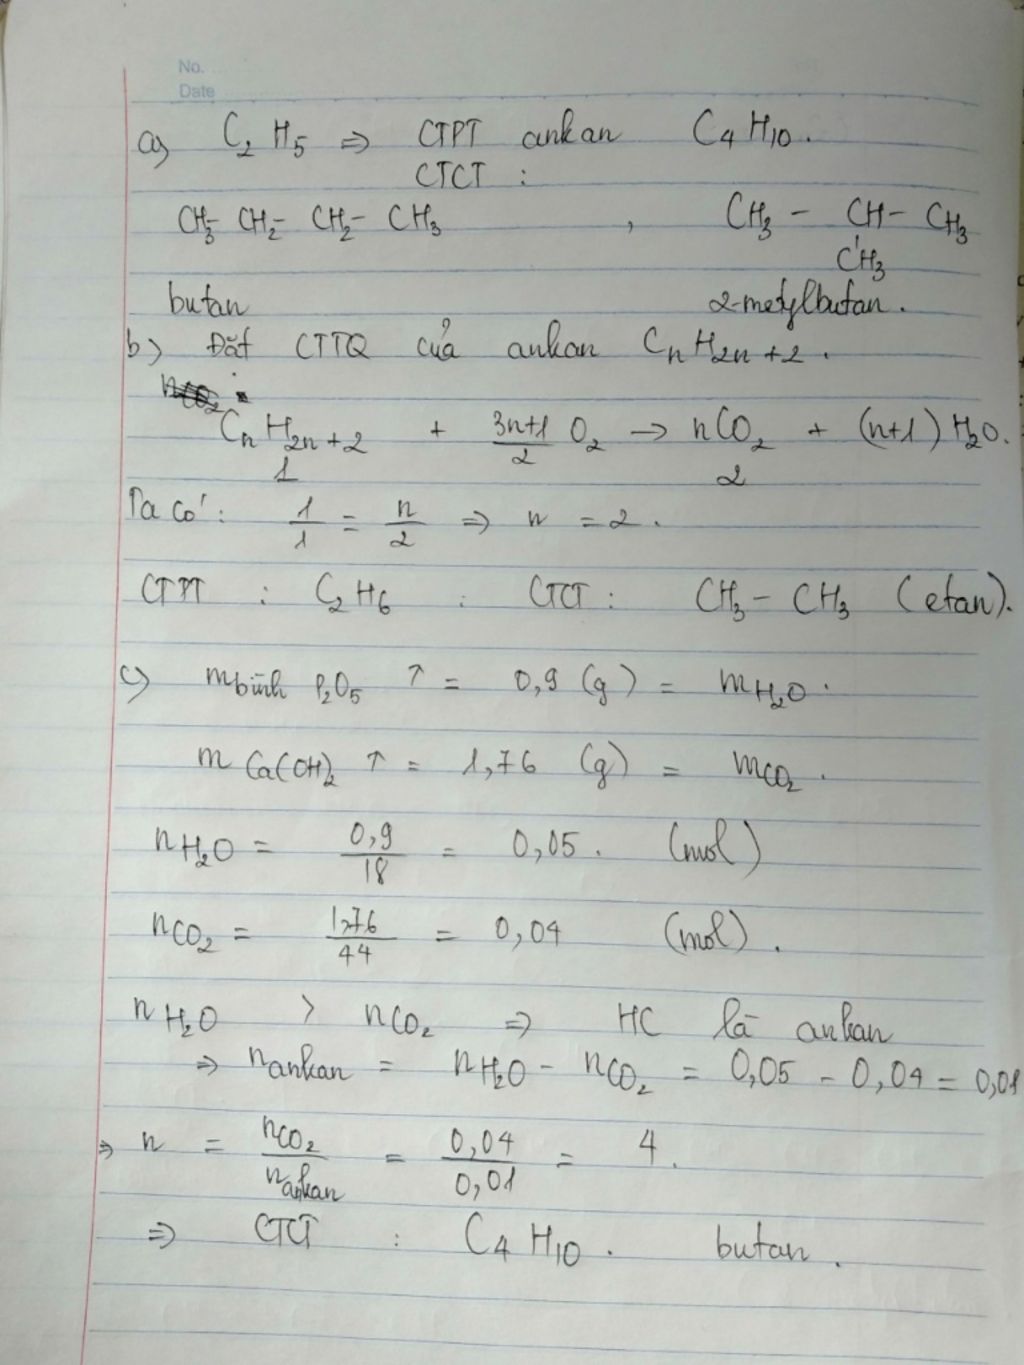 No.
Date
a) C₂H₅ ⇒ CTPT ankan C₄H₁₀.
CTCT :
CH₃- CH₂- CH₂- CH₃ , CH₃ - CH - CH₃
CH₃
butan 2-metylbutan.
b) Đặt CTTQ của ankan CₙH₂ₙ₊₂.
CₙH₂ₙ₊₂ + (3n+1)/2 O₂ → nCO₂ + (n+1) H₂O.
1 2
Ta có: 1/1 = n/2 ⇒ n = 2.
CTPT : C₂H₆ : CTCT : CH₃ - CH₃ (etan).
c) m bình P₂O₅ ↑ = 0,9 (g) = mH₂O.
m Ca(OH)₂ ↑ = 1,76 (g) = mCO₂.
nH₂O = 0,9/18 = 0,05. (mol)
nCO₂ = 1,76/44 = 0,04 (mol).
nH₂O > nCO₂ ⇒ HC là ankan
⇒ nankan = nH₂O - nCO₂ = 0,05 - 0,04 = 0,01
⇒ n = nCO₂/nankan = 0,04/0,01 = 4.
⇒ CTCT : C₄H₁₀. butan.